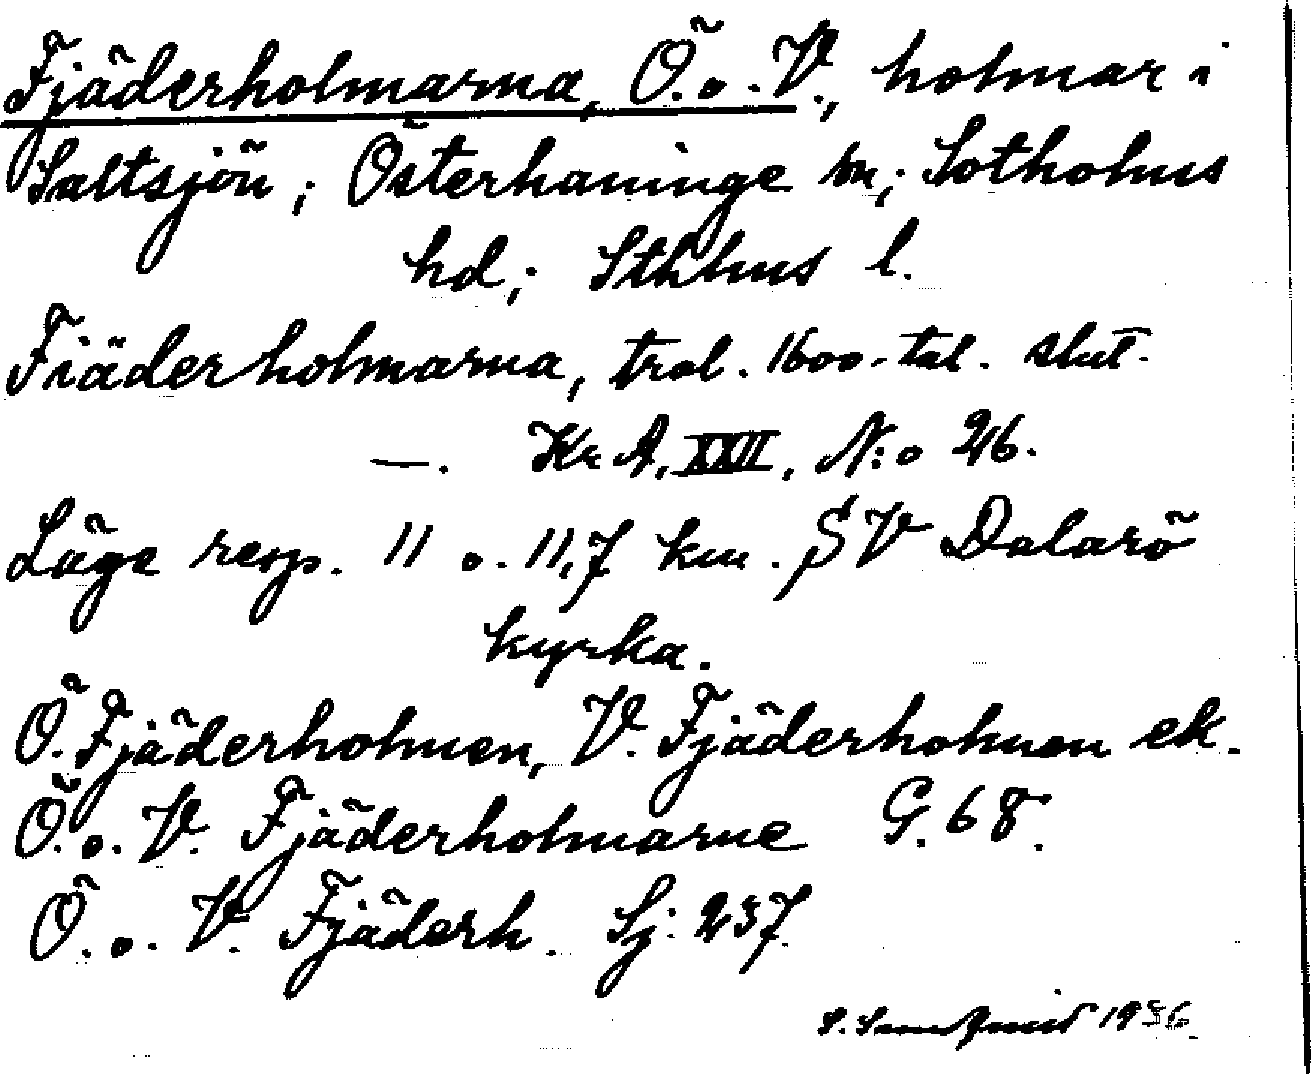 Fjäderholmarna, Ö. o. V., holmar i
Saltsjön; Österhaninge sn; Sotholms
hd; Sthlms l.
Fiäderholmarna, trol. 1600-tal. slut.
—. Kr A, XXII, N:o 26.
Läge resp. 11 o. 11,7 km. SV Dalarö
kyrka.
Ö. Fjäderholmen, V. Fjäderholmen ek.
Ö. o. V. Fjäderholmarne G. 68.
Ö. o. V. Fjäderh. Sj: 237
S. 1936